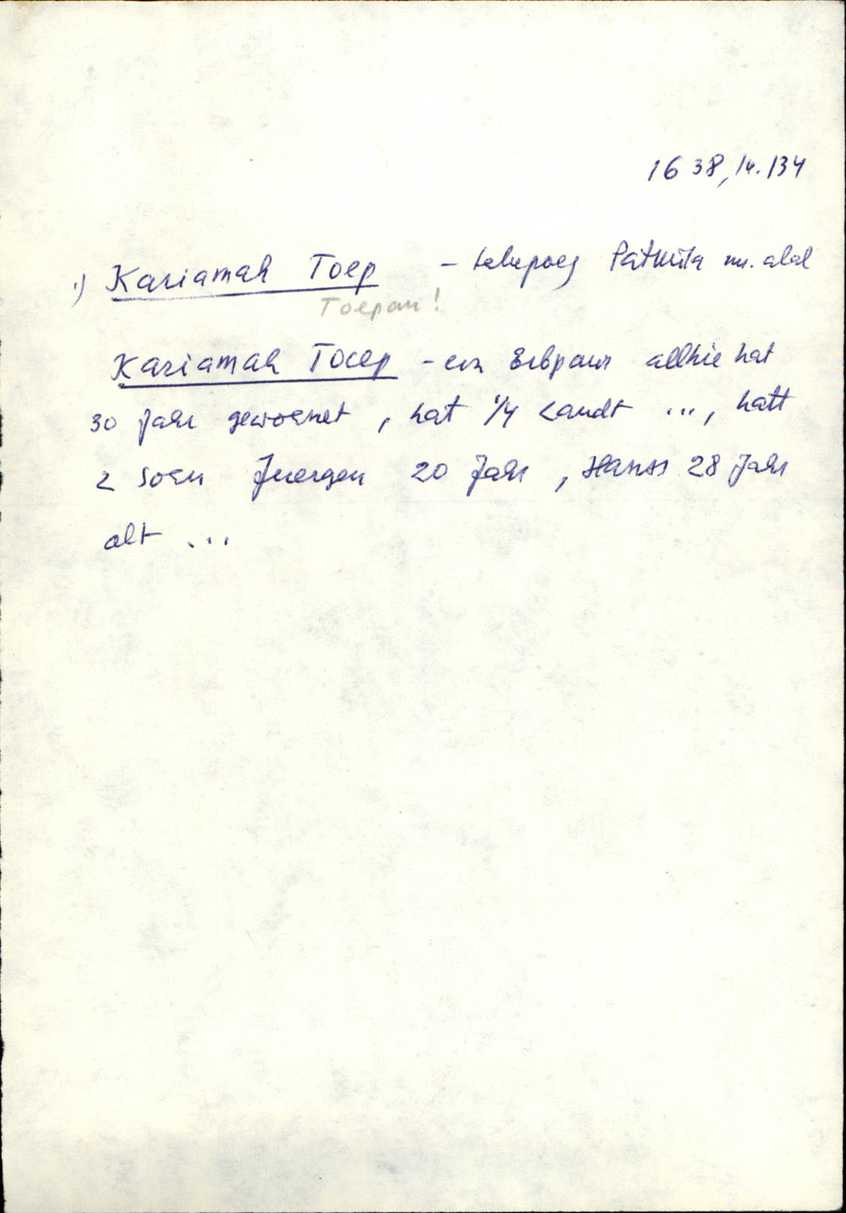 1638, lk. 134
1) Kariamah Toep - Patkula m. alal
Toepou!
Kariamah Tocep - ein Erbpaur allhie hat
30 Jahr gewoenet, hat 1/4 Landt ..., hatt
2 Soen Juergen 20 Jahr, Hanss 28 Jahr
alt ...